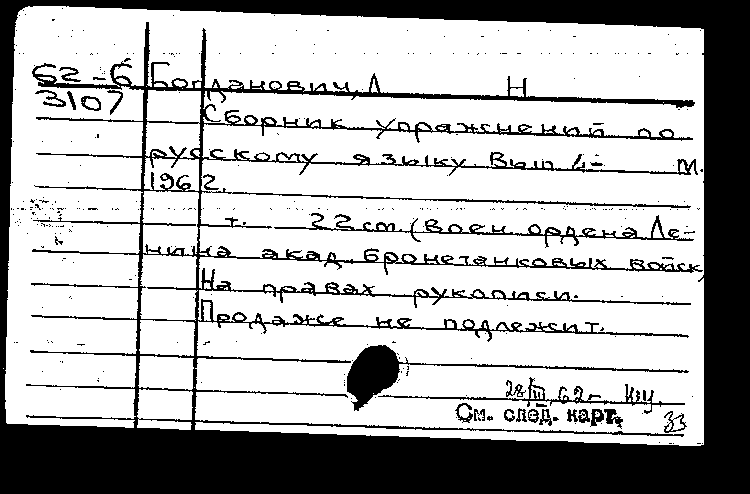 62-6 Богданович, Л Н
3107
Сборник упражнений по
русскому языку Вып 4- М.
1962.
т. 22 cm. (Воен. ордена Ле-
нина акад. бронетанковых войск)
На правах рукописи.
Продаже не подлежит.
28/III 62г.
См. след. карт. 33